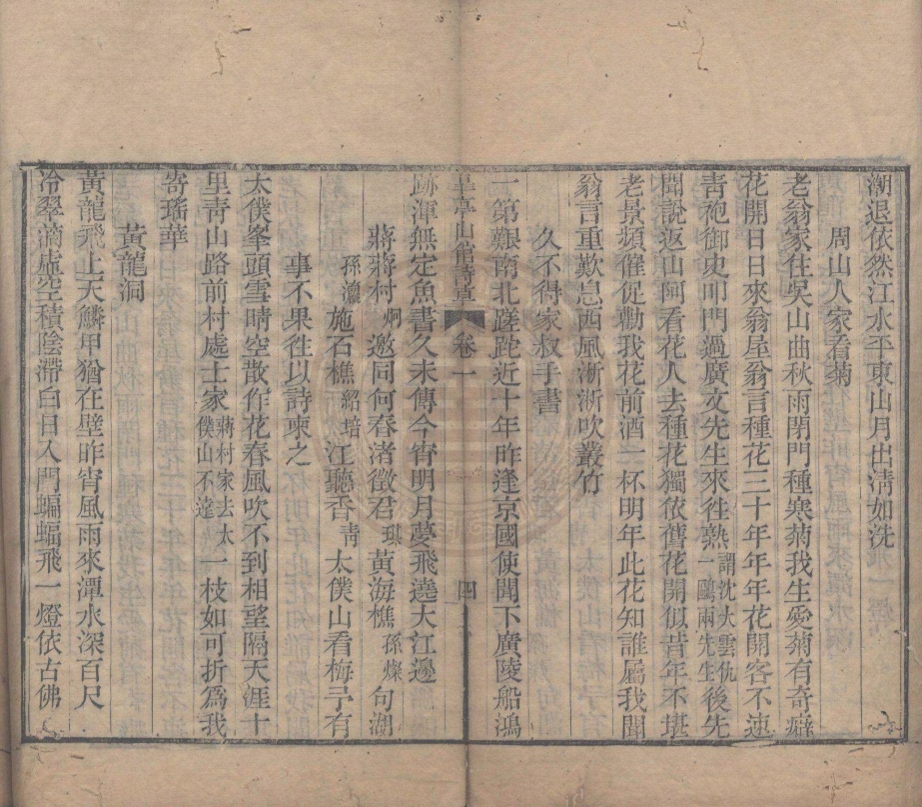 潮退依然江水平東山月出淸如洗
周山人家看菊
老翁家住吳山曲秋雨閉門種寒菊我生愛菊有奇癖
花開日日來翁屋翁言種花三十年年年花開客不速
靑袍御史叩門過廣文先生來徃熟謂沈大雲仇一鷗兩先生後先
聞說返山阿看花人去種花獨依舊花開似昔年不堪
老景頻催促勸我花前酒一杯明年此花知誰屬我聞
翁言重歎息西風淅淅吹叢竹
久不得家叔手書
一第艱南北蹉跎近十年昨逢京國使聞下廣陵船鴻
跡渾無定魚書久未傳今宵明月夢飛遶大江邊
皐亭山館詩草 卷一 四
蔣蔣村炯邀同何春渚徵君琪黃海樵孫燦句湖
孫灝施石樵紹培江聽香靑太僕山看梅予有
事不果徃以詩柬之
太僕峯頭雪晴空散作花春風吹不到相望隔天涯十
里靑山路前村處士家蔣村家去太僕山不遠一枝如可折爲我
寄瑤華
黃龍洞
黃龍飛上天鱗甲猶在壁昨宵風雨來潭水深百尺
冷翠滴虛空積陰滯白日入門蝙蝠飛一燈依古佛